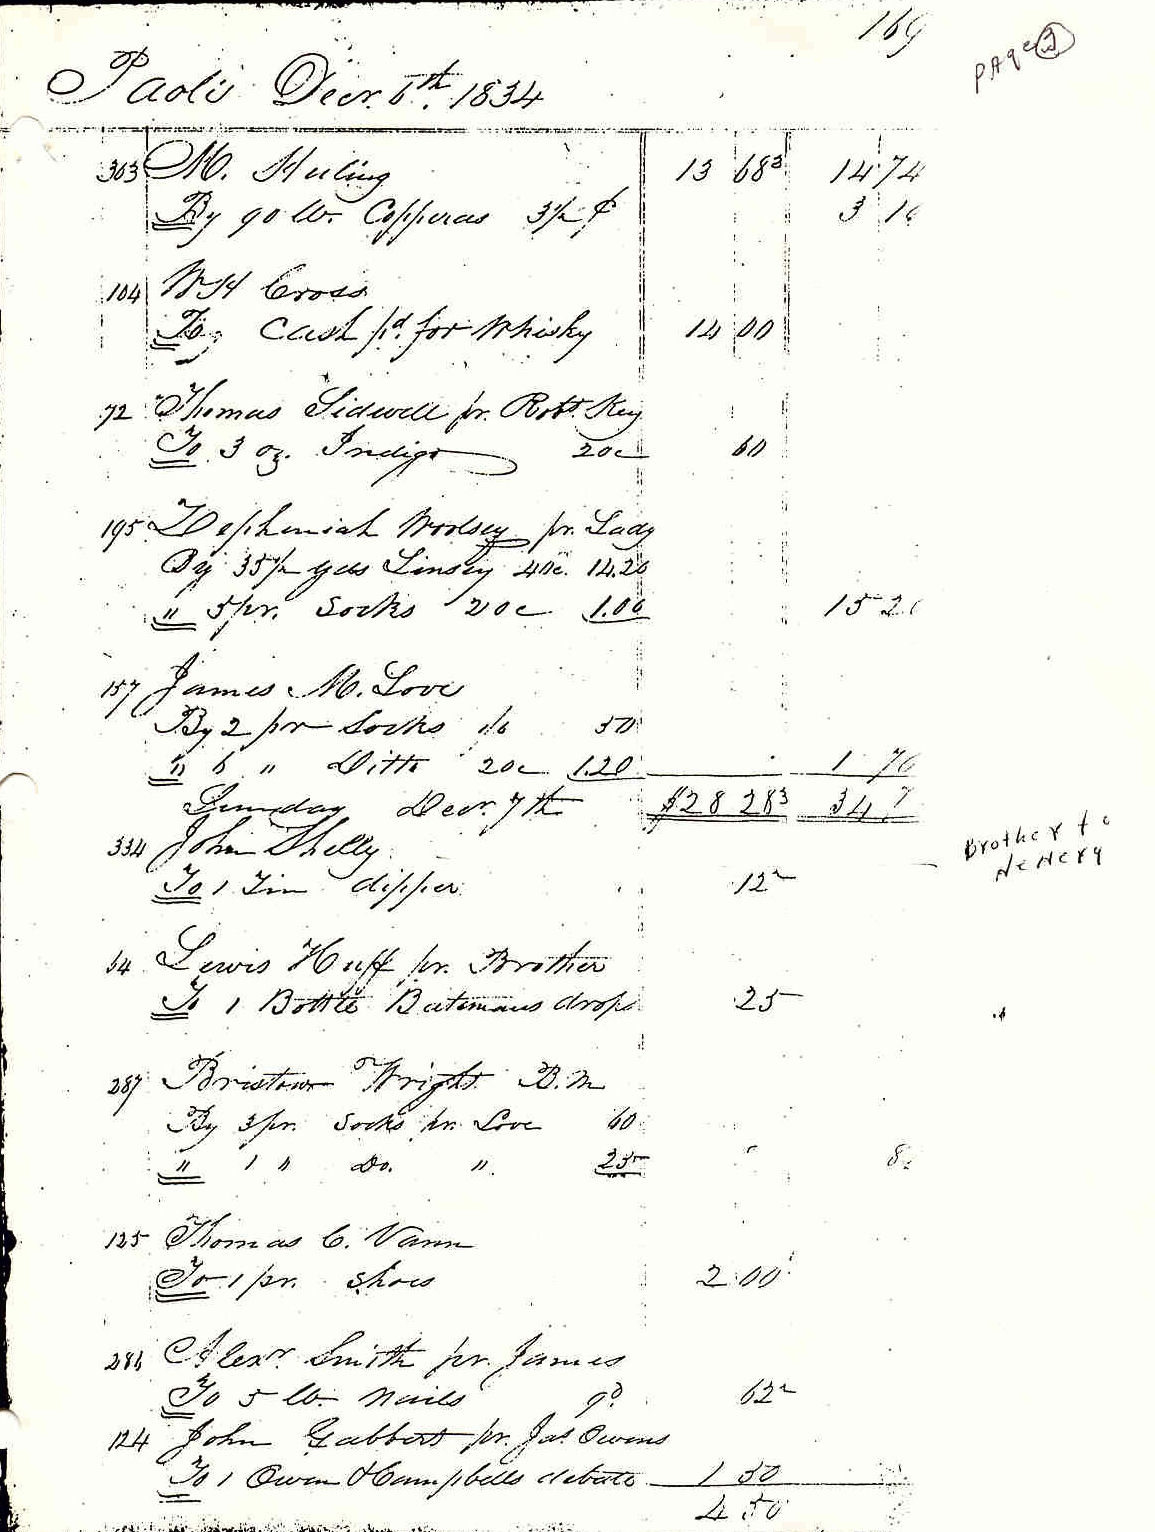 169
Page 2
Paoli Decr. 6th. 1834
303 M. Huling 13 68³ 14 74
By 90 lb. Copperas 3½ ¢ 3 1
104 Wm Cross
To Cash pd. for Whisky 14 00
72 Thomas Sidwell pr. Robt. Key
To 3 oz. Indigo 20c 60
195 Zepheniah Woolsey pr. Lady
By 35½ yds Linsey 40c. 14.20
" 5 pr. Socks 20c 1.00 15 20
157 James M. Love
By 2 pr Socks 1/6 50
" 6 " Ditto 20c 1.20 1 70
Sunday Decr. 7th $28 28³ 34
334 John Shelly
Brother to
Henery
To 1 Tin dipper 12²
64 Lewis Huff pr. Brother
To 1 Bottle Batemans drops 25
287 Bristow Wright B.M
By 3 pr. Socks pr. Love 60
" 1 " Do. " 25 8
125 Thomas C. Vann
To 1 pr. Shoes 2 00
286 Alexr Smith pr. James
To 5 lb. nails 9d. 62²
124 John Gabbert pr. Jas. Owens
To 1 Owen & Campbells debate 1 50
4 50